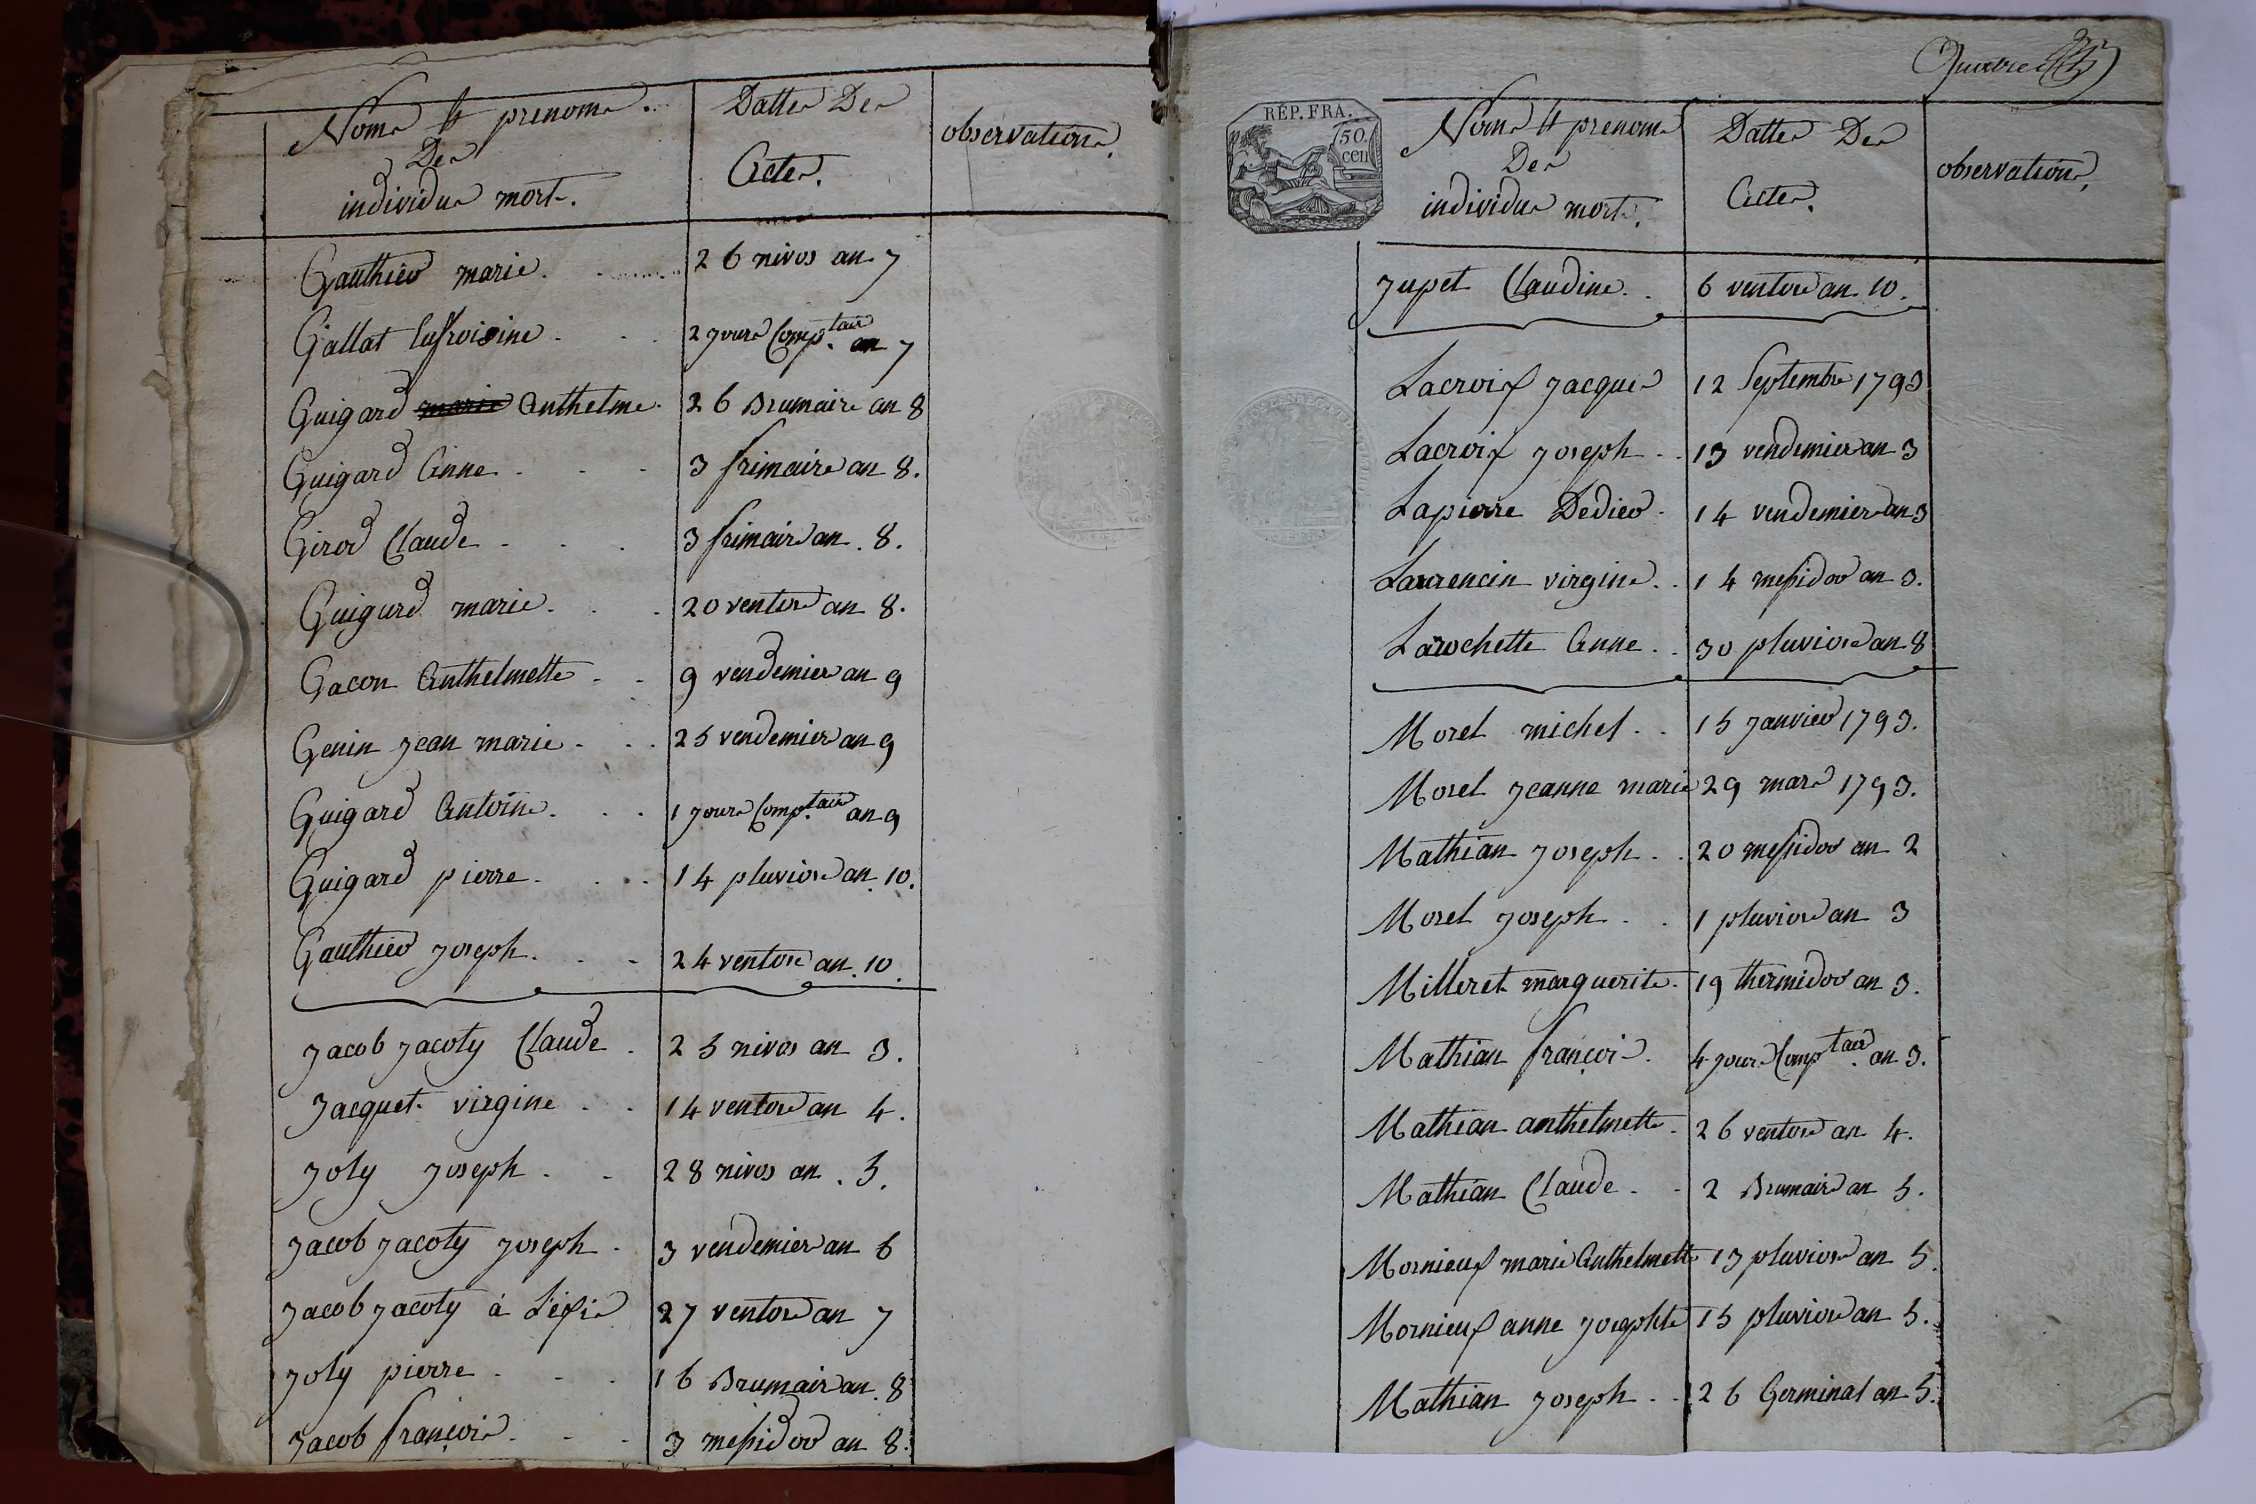 Noms & prenoms
Des
individus morts.
Dattes Des
Actes.
observations.
Gauthier marie. 26 nivos an 7
Gallat lufroisine. 2 jours Comp.taire an 7
Guigard marie Anthelme. 26 Brumaire an 8
Guigard Anne. 3 frimaire an 8.
Girod Claude. 3 frimaire an. 8.
Guigard marie. 20 ventose an 8.
Gacon Anthelmette. 9 vendemier an 9
Genin jean marie. 25 vendemier an 9
Guigard Antoine. 1 jours Comp.taire an 9
Guigard pierre. 14 pluviose an. 10.
Gauthier joseph. 24 ventose an. 10.
jacob jacoty Claude. 25 nivos an 3.
jacquet virgine. 14 ventose an 4.
joly joseph. 28 nivos an. 5.
jacob jacoty joseph. 3 vendemier an 6
jacob jacoty á 27 ventose an 7
joly pierre. 16 Brumaire an. 8
jacob françois. 3 messidor an 8.
RÉP. FRA.
50
cen
Noms & prenoms
Des
individus morts.
Dattes Des
Actes.
observations.
jupet Claudine. 6 ventose an 10.
Lacroix jacques 12 Septembre 1793
Lacroix joseph. 13 vendemier an 3
Lapierre Dedier. 14 vendemier an 3
Laurencin virgine. 14 messidor an 3.
Larochette Anne. 30 pluviose an 8
Morel michel. 15 janvier 1793.
Morel jeanne marie 29 mars 1793.
Mathian joseph. 20 messidor an 2
Morel joseph. 1 pluviose an 3
Milleret marguerite. 19 thermidor an 3.
Mathian françois. 4 jours Comp.taire an 3.
Mathian anthelmette. 26 ventose an 4.
Mathian Claude. 2 Brumaire an 5.
Mornieux marie Anthelmette 13 pluviose an 5.
Mornieux anne josephte 15 pluviose an 5.
Mathian joseph. 26 Germinal an 5.